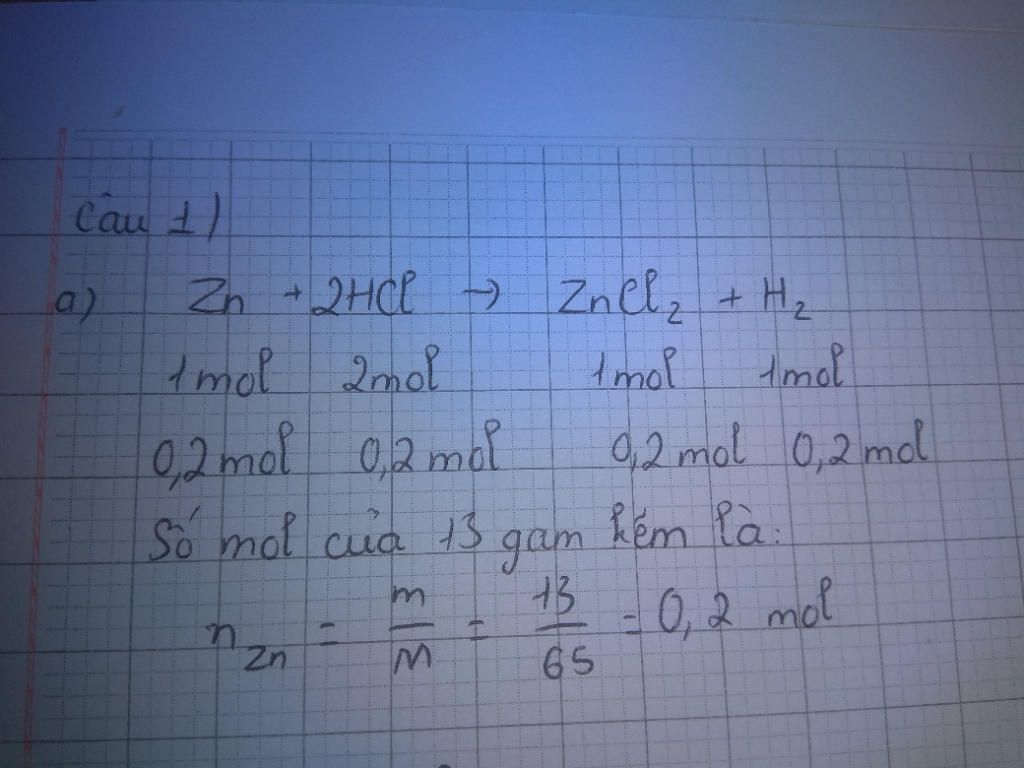 Câu 1)
a) Zn + 2HCl → ZnCl₂ + H₂
1mol 2mol 1mol 1mol
0,2mol 0,2mol 0,2mol 0,2mol
Số mol của 13 gam kẽm là:
n_Zn = m/M = 13/65 = 0,2 mol